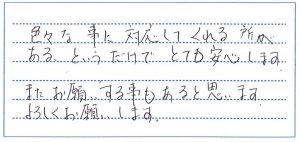 色々な事に対応してくれる所が
ある、というだけで とても安心します
またお願いする事もあると思います
よろしくお願いします。